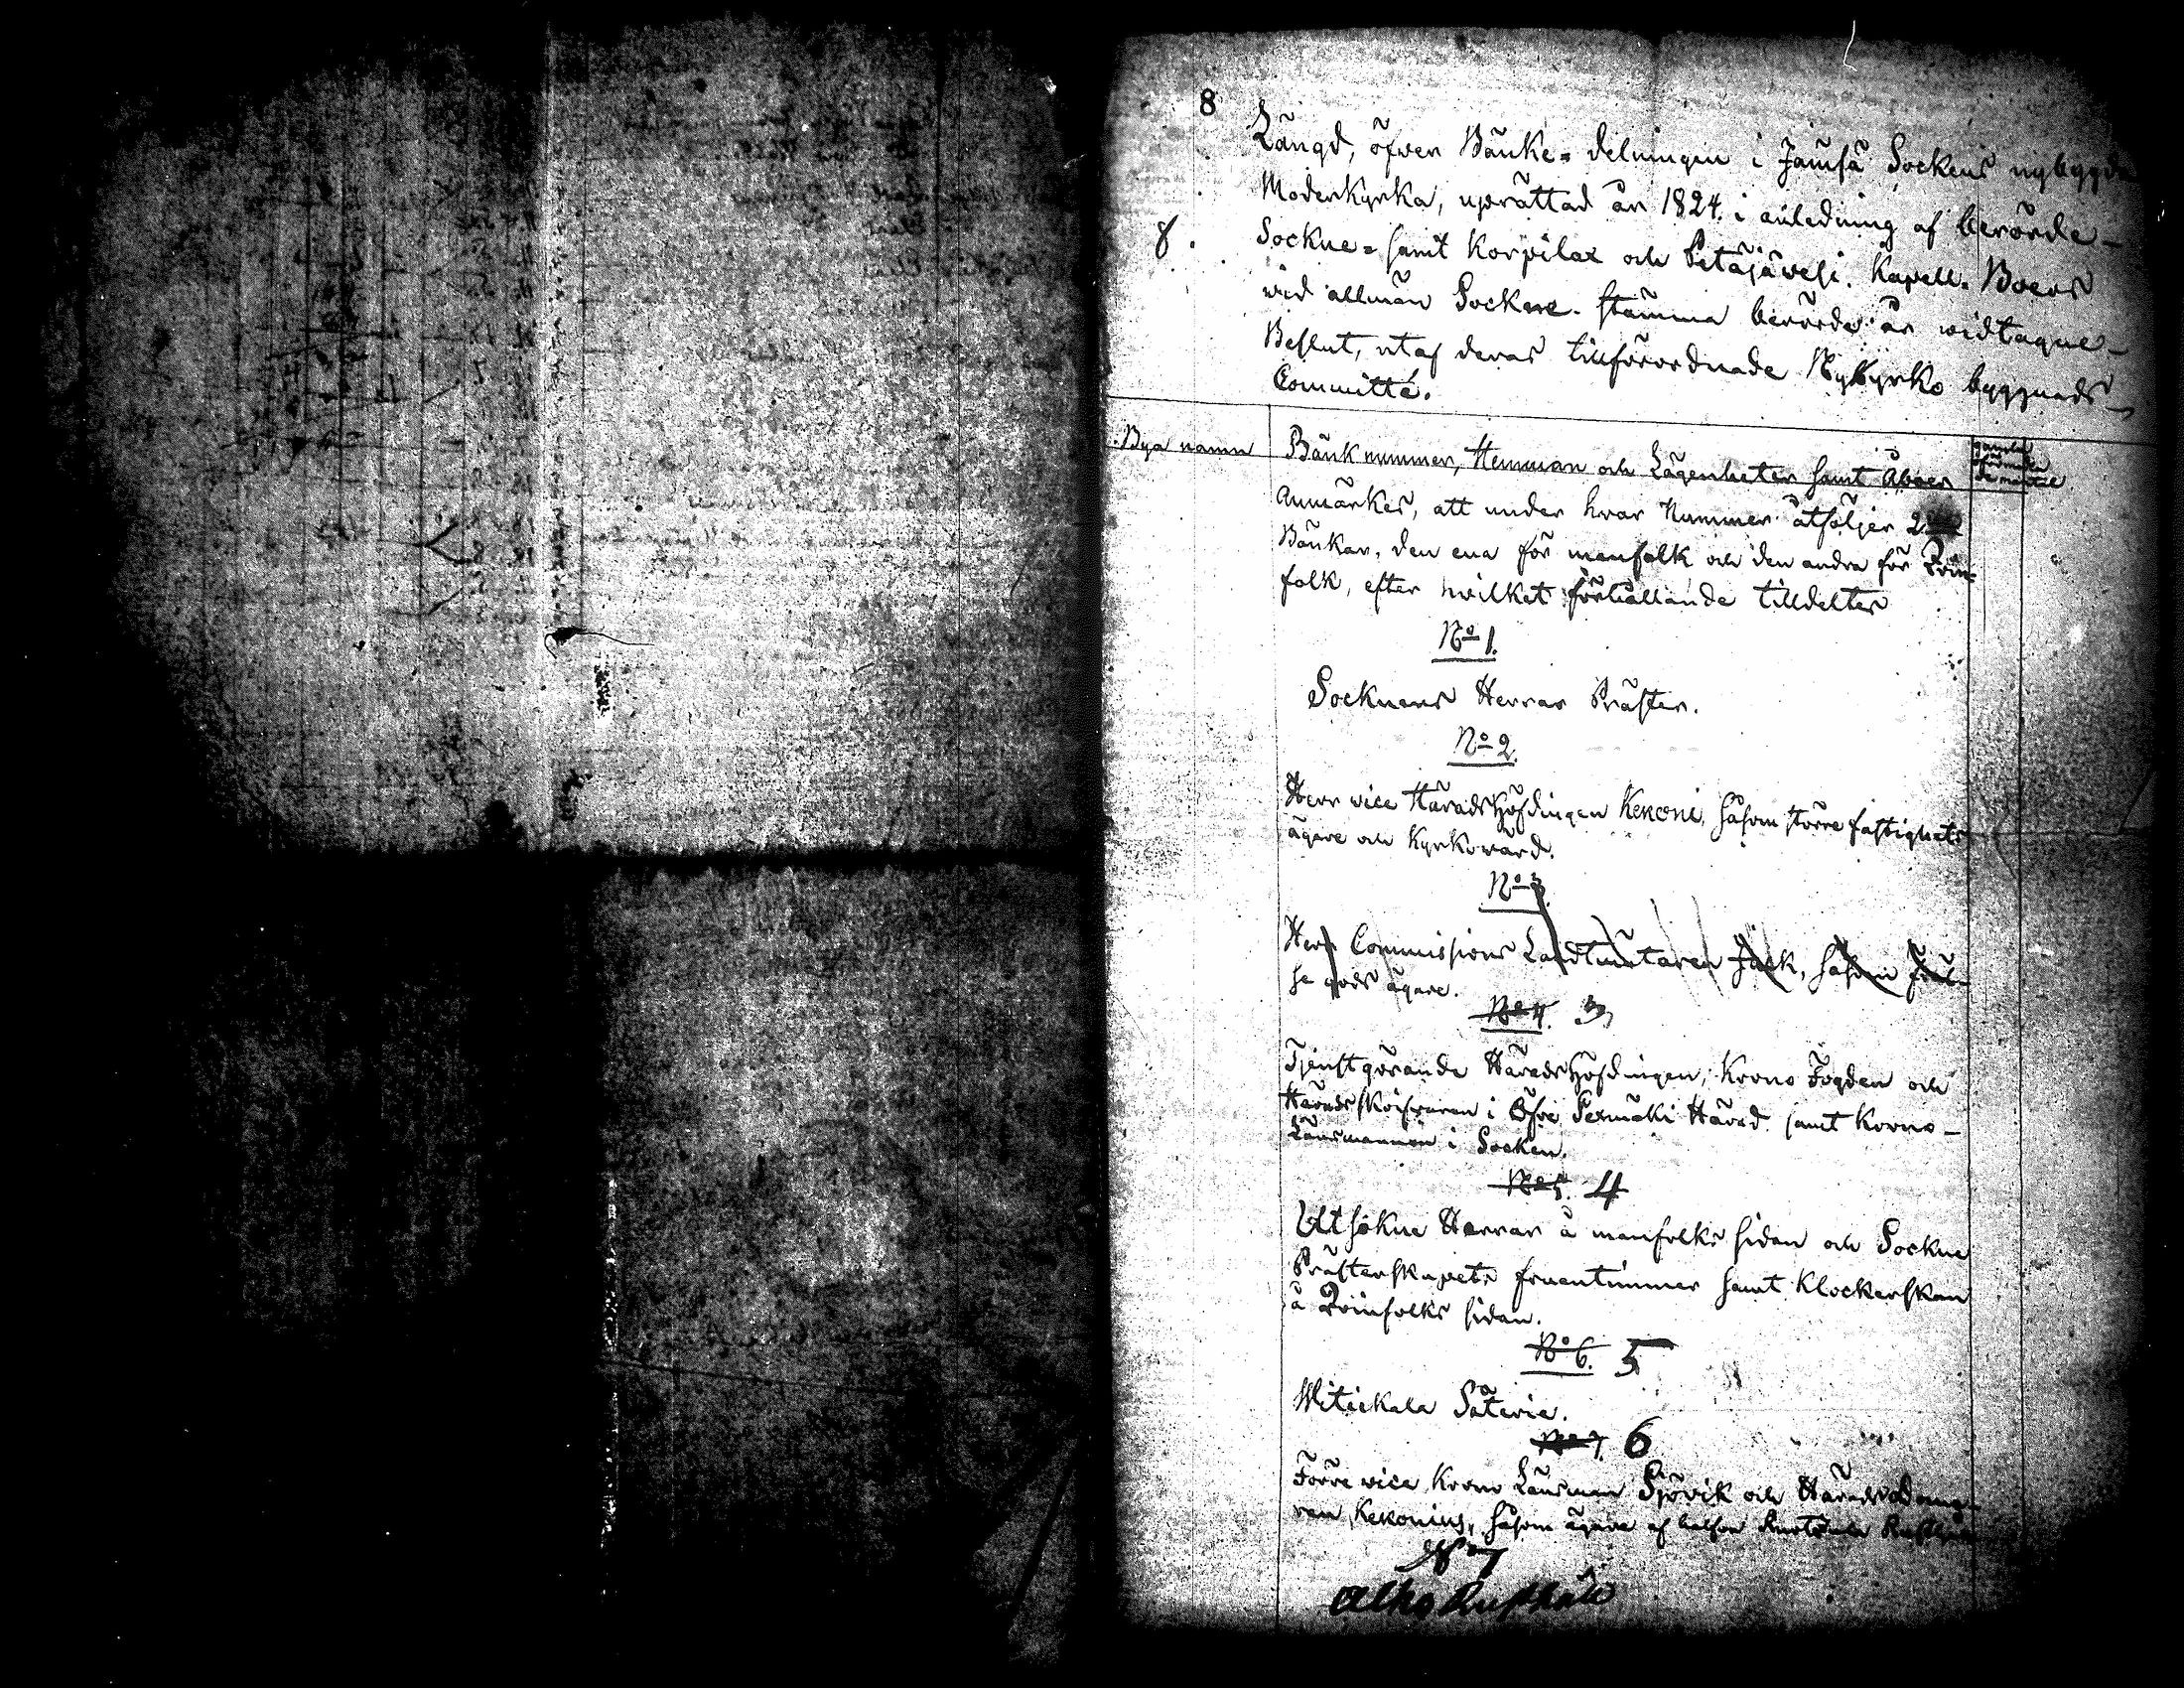 8
Längd, öfwer Bänke-delningen i Jämsä Sockens nybygda
Moderkyrka, uprättad år 1824. i anledning af berörde-
8. Sockne- samt Korpilax och Petäjävesi. Kapell-Boers
wid allmän Sockne-stämma berörde år widtagne-
Beslut, utaf deras tillförordnade Nykyrko byggnads-
Committé.
Bya namn
Bänk nummer, Hemman och Lägenheter samt Åboer
gamla
mantal
Anmärkes, att under hvar Nummer åtföljer 2
Bänkar, den ena för manfolk och den andra för Qvin-
folk, efter hvilket förhållande tilldeltes
No 1.
Socknens Herrar Präster.
No 2.
Herr vice Häradshöfdingen Kekoni, såsom större fastighets
ägare och Kyrkovärd.
No 3
Herr Commissions Landtmätaren Jack, såsom fräl-
se gods ägare.
No 4. 3
Tjenstgörande Häradshöfdingen, Krono Fogden och
Häradsskrifvaren i Öfre Sexmäki Härad samt Krono-
Länsmannen i Socken.
No 5. 4
Utsökne Herrar å manfolks sidan och Sockne
Prästerskapets fruentimmer samt Klockerskan
å Qvinfolks sidan.
No 6. 5
Witickala Säterie.
No 7. 6
Förre vice Krono Länsman Sjövik och Häradsdoma-
ren Kekonius, såsom ägare af halfva Rusthåll
No 7
Alho Rusthåll